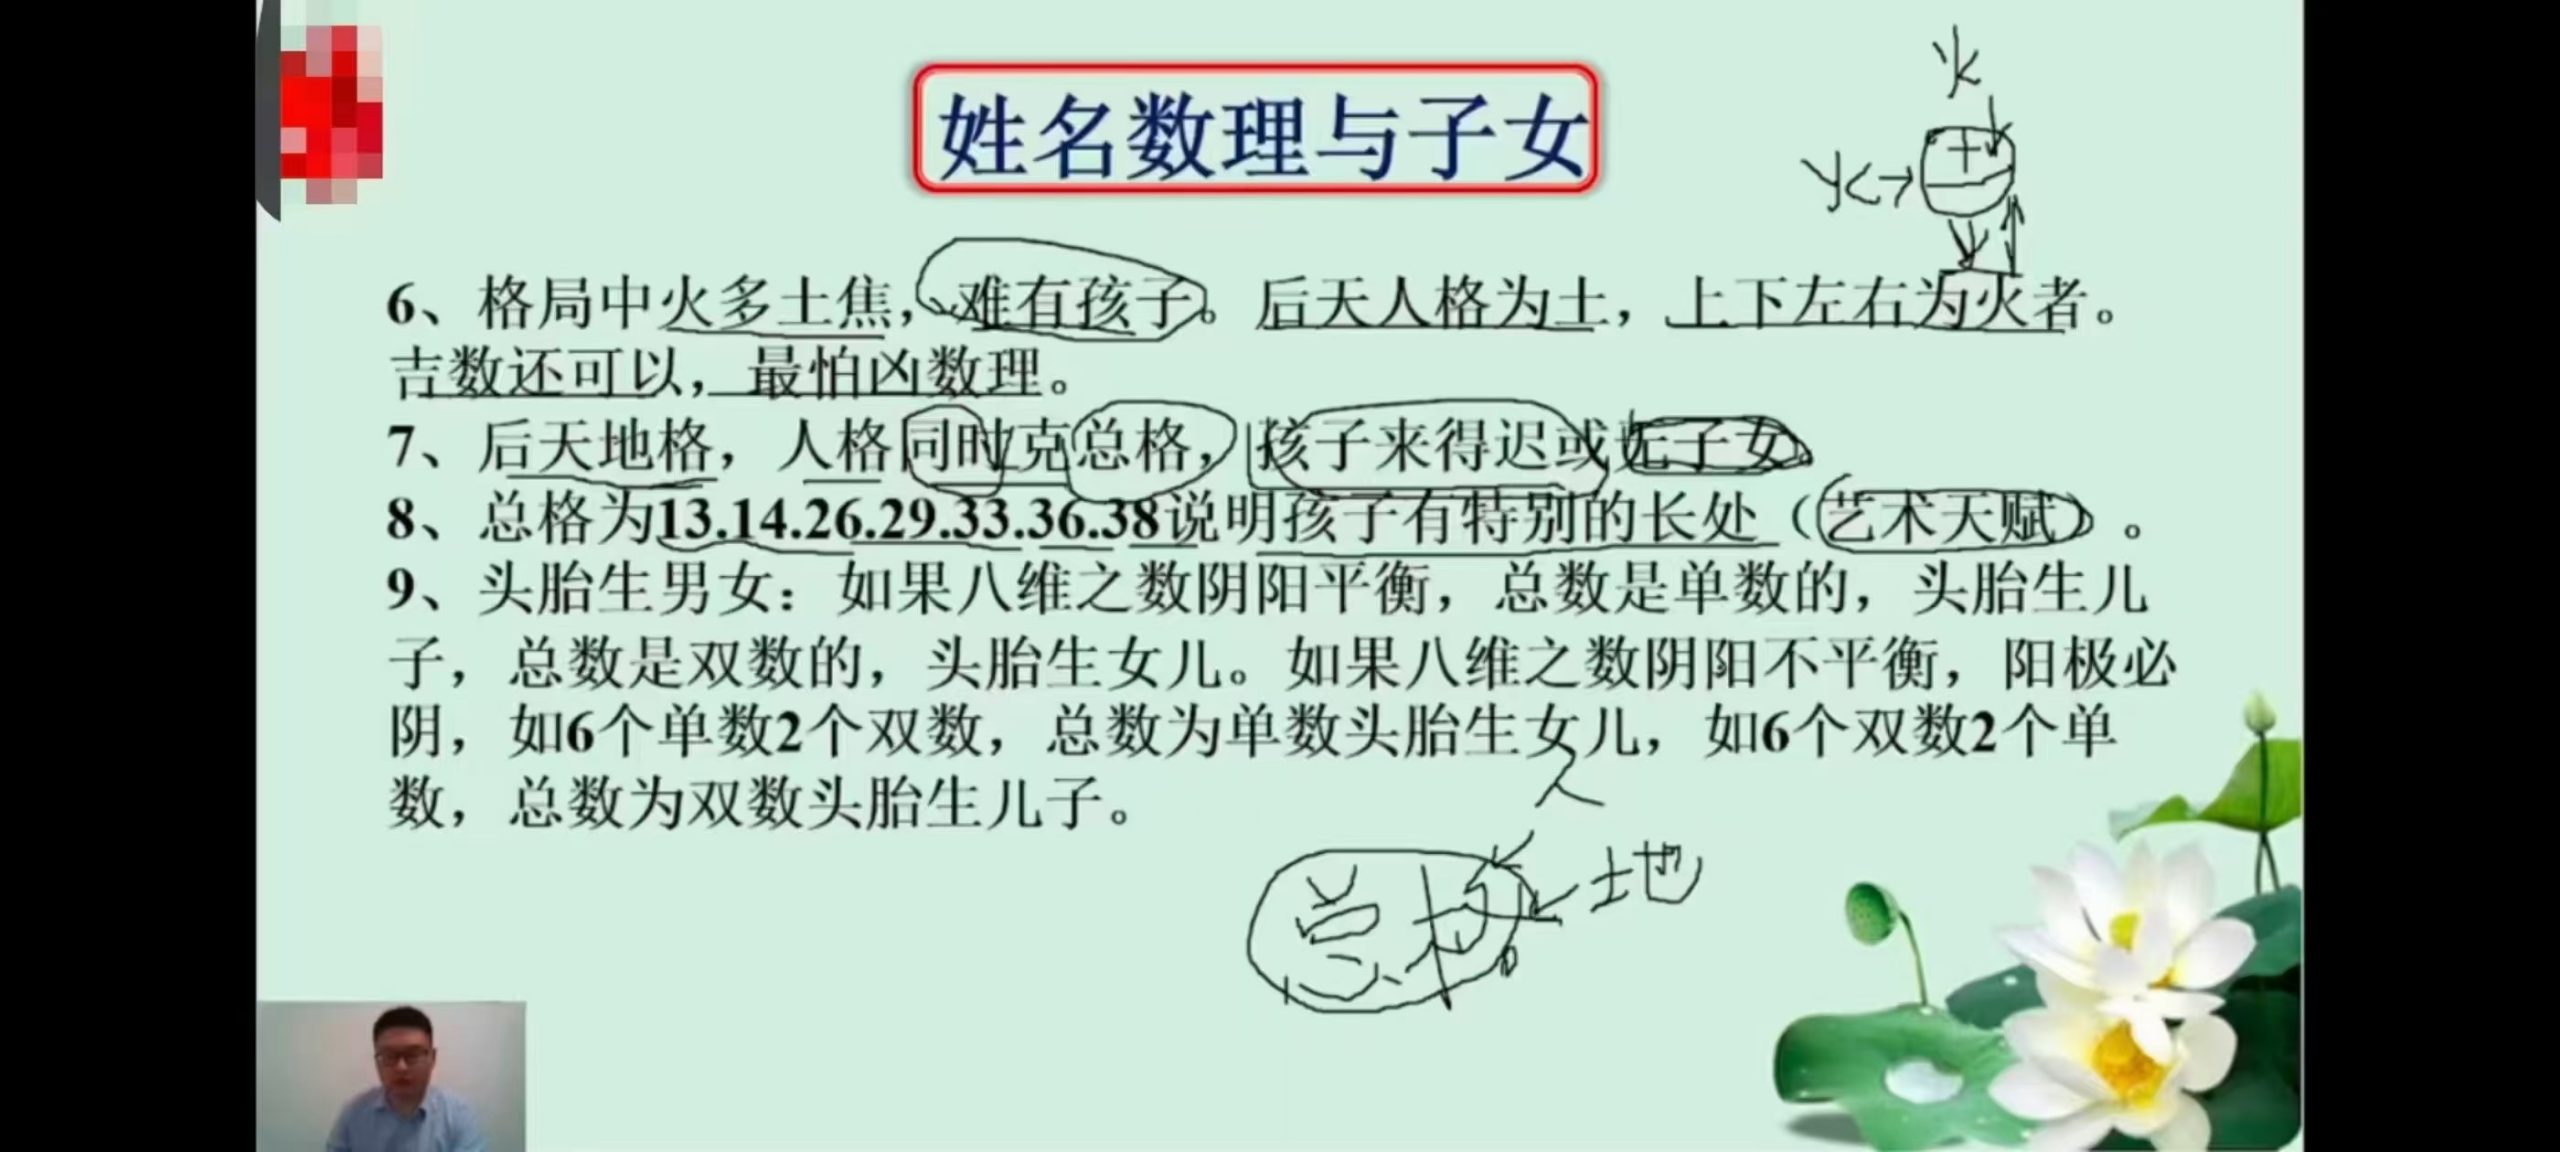 姓名数理与子女
火
火
土
6、格局中火多土焦，难有孩子。后天人格为土，上下左右为火者。
吉数还可以，最怕凶数理。
7、后天地格，人格同时克总格，孩子来得迟或无子女。
8、总格为13.14.26.29.33.36.38说明孩子有特别的长处（艺术天赋）。
9、头胎生男女：如果八维之数阴阳平衡，总数是单数的，头胎生儿
子，总数是双数的，头胎生女儿。如果八维之数阴阳不平衡，阳极必
阴，如6个单数2个双数，总数为单数头胎生女儿，如6个双数2个单
数，总数为双数头胎生儿子。
人
总格
地